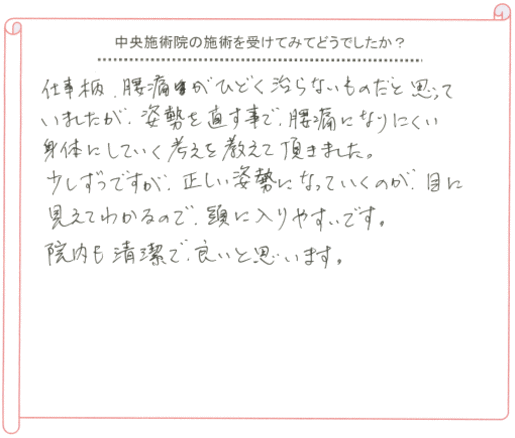 中央施術院の施術を受けてみてどうでしたか？
仕事柄、腰痛がひどく治らないものだと思って
いましたが、姿勢を直す事で、腰痛になりにくい
身体にしていく考えを教えて頂きました。
少しずつですが、正しい姿勢になっていくのが、目に
見えてわかるので、頭に入りやすいです。
院内も清潔で、良いと思います。